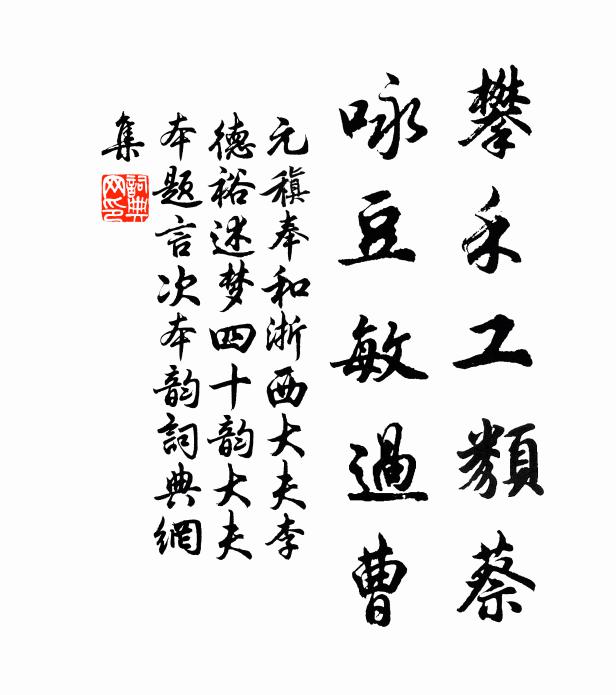 攀禾工類蔡
咏豆敏過曹
元稹奉和浙西大夫李
德裕述梦四十韵大夫
本題言次本韵詞典網
集
詞典网印